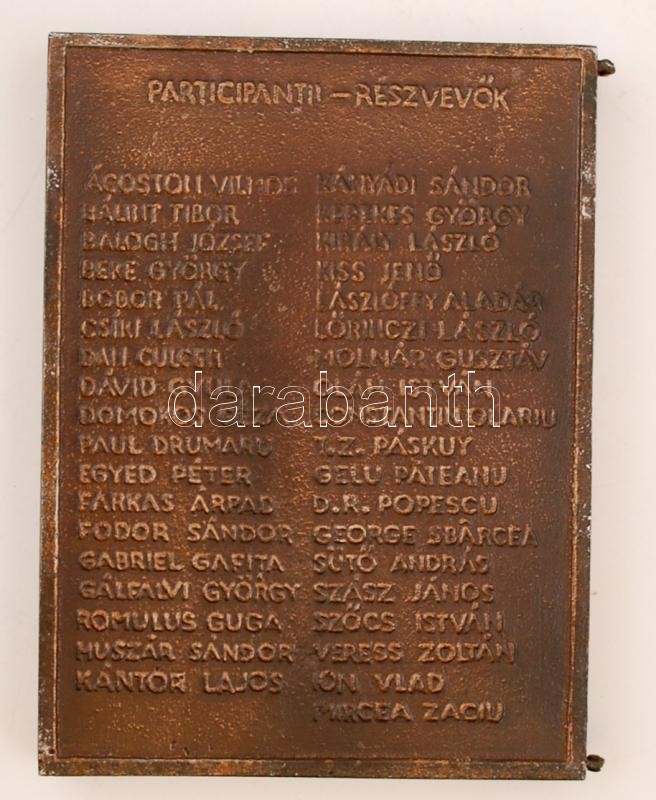 PARTICIPANTII – RÉSZVEVŐK
ÁGOSTON VILMOS
BÁLINT TIBOR
BALOGH JÓZSEF
BEKE GYÖRGY
BOBOR PÁL
CSIKI LÁSZLÓ
DAN CULCER
DÁVID GYULA
DOMOKOS GÉZA
PAUL DRUMARU
EGYED PÉTER
FARKAS ÁRPÁD
FODOR SÁNDOR
GABRIEL GAFITA
GÁLFALVI GYÖRGY
ROMULUS GUGA
HUSZÁR SÁNDOR
KÁNTOR LAJOS
KÁNYÁDI SÁNDOR
KEREKES GYÖRGY
KIRÁLY LÁSZLÓ
KISS JENŐ
LÁSZLÓFFY ALADÁR
LŐRINCZI LÁSZLÓ
MOLNÁR GUSZTÁV
OLÁH ISTVÁN
CONSTANTIN OLARIU
T.Z. PÁSKUY
GELU PĂTEANU
D.R. POPESCU
GEORGE SBÂRCEA
SÜTŐ ANDRÁS
SZÁSZ JÁNOS
SZŐCS ISTVÁN
VERESS ZOLTÁN
ION VLAD
MIRCEA ZACIU
darabanth